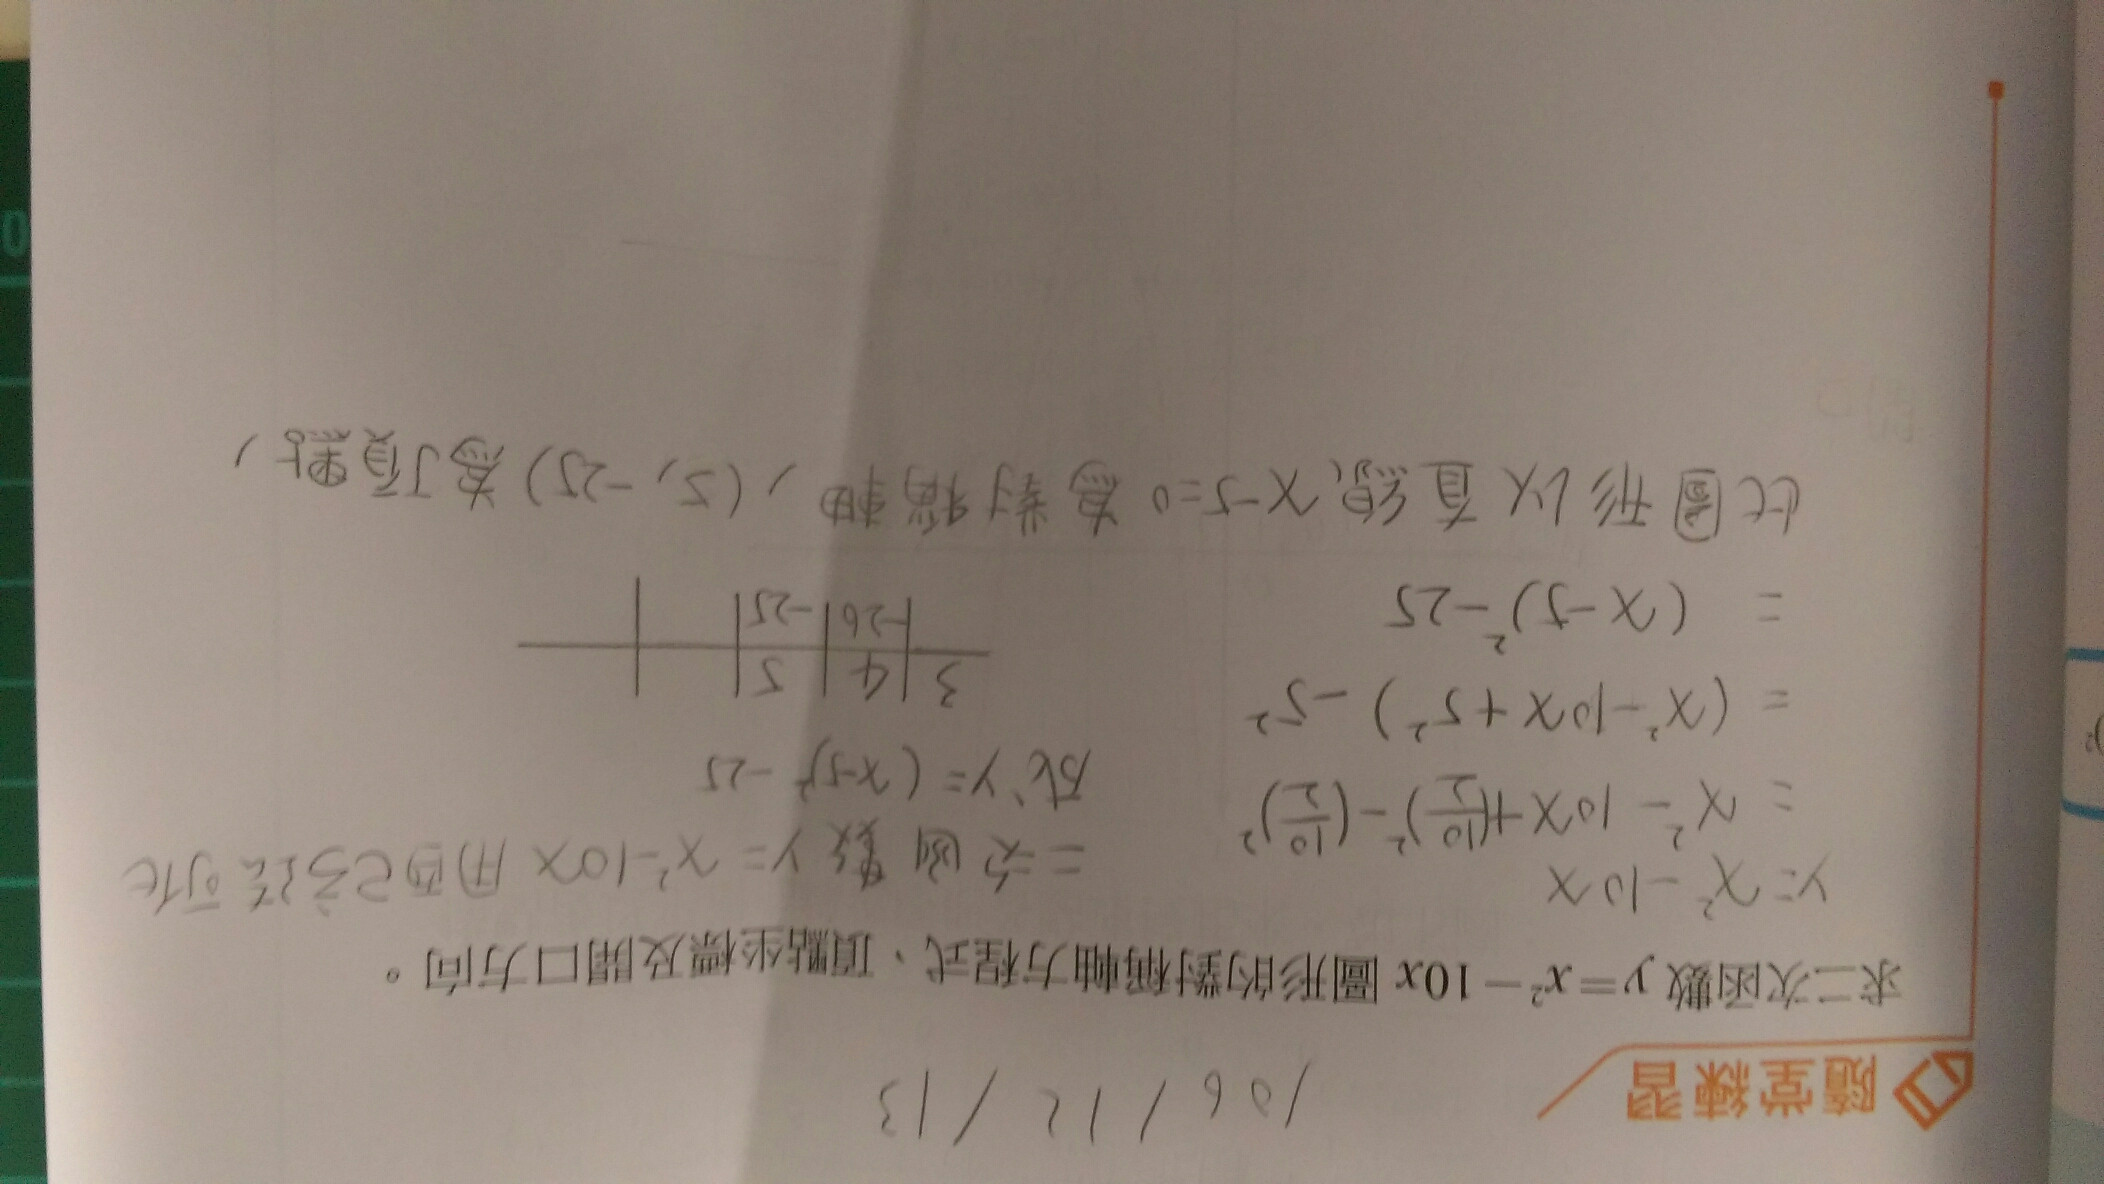 隨堂練習
106/12/13
求二次函數 y=x²-10x 圖形的對稱軸方程式、頂點坐標及開口方向。
y=x²-10x
=x²-10x+(10/2)²-(10/2)²
=(x²-10x+5²)-5²
=(x-5)²-25
二次函數 y=x²-10x 用配方法可化
成 y=(x-5)²-25
3 | 4 | 5 |
| -26 | -25 |
此圖形以直線 x-5=0 為對稱軸,(5, -25) 為頂點,